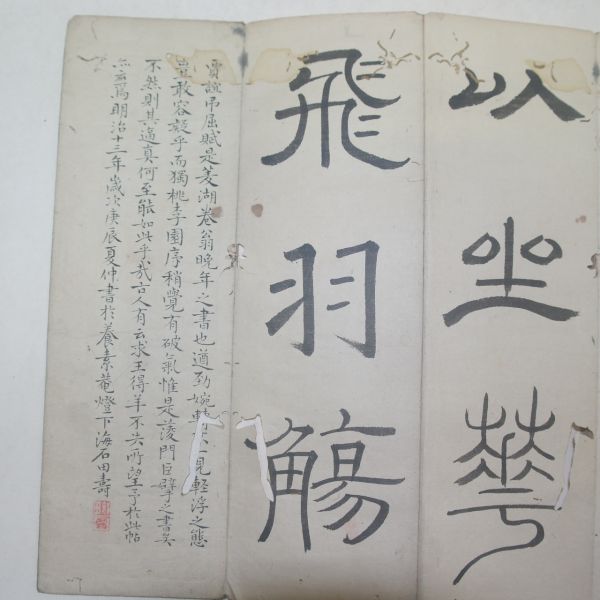 以坐花
飛羽觴
賈誼弔屈賦是菱湖卷翁晚年之書也遒勁婉轉 一見輕浮之態
豈敢容疑乎而獨桃李園序稍覺有破氣惟是菱門巨擘之書矣
不然則其逼真何至能如此乎哉古人有云求王得羊不失所望予於此帖
亦云爲明治十三年歲次庚辰夏仲書於養素菴燈下海石田壽